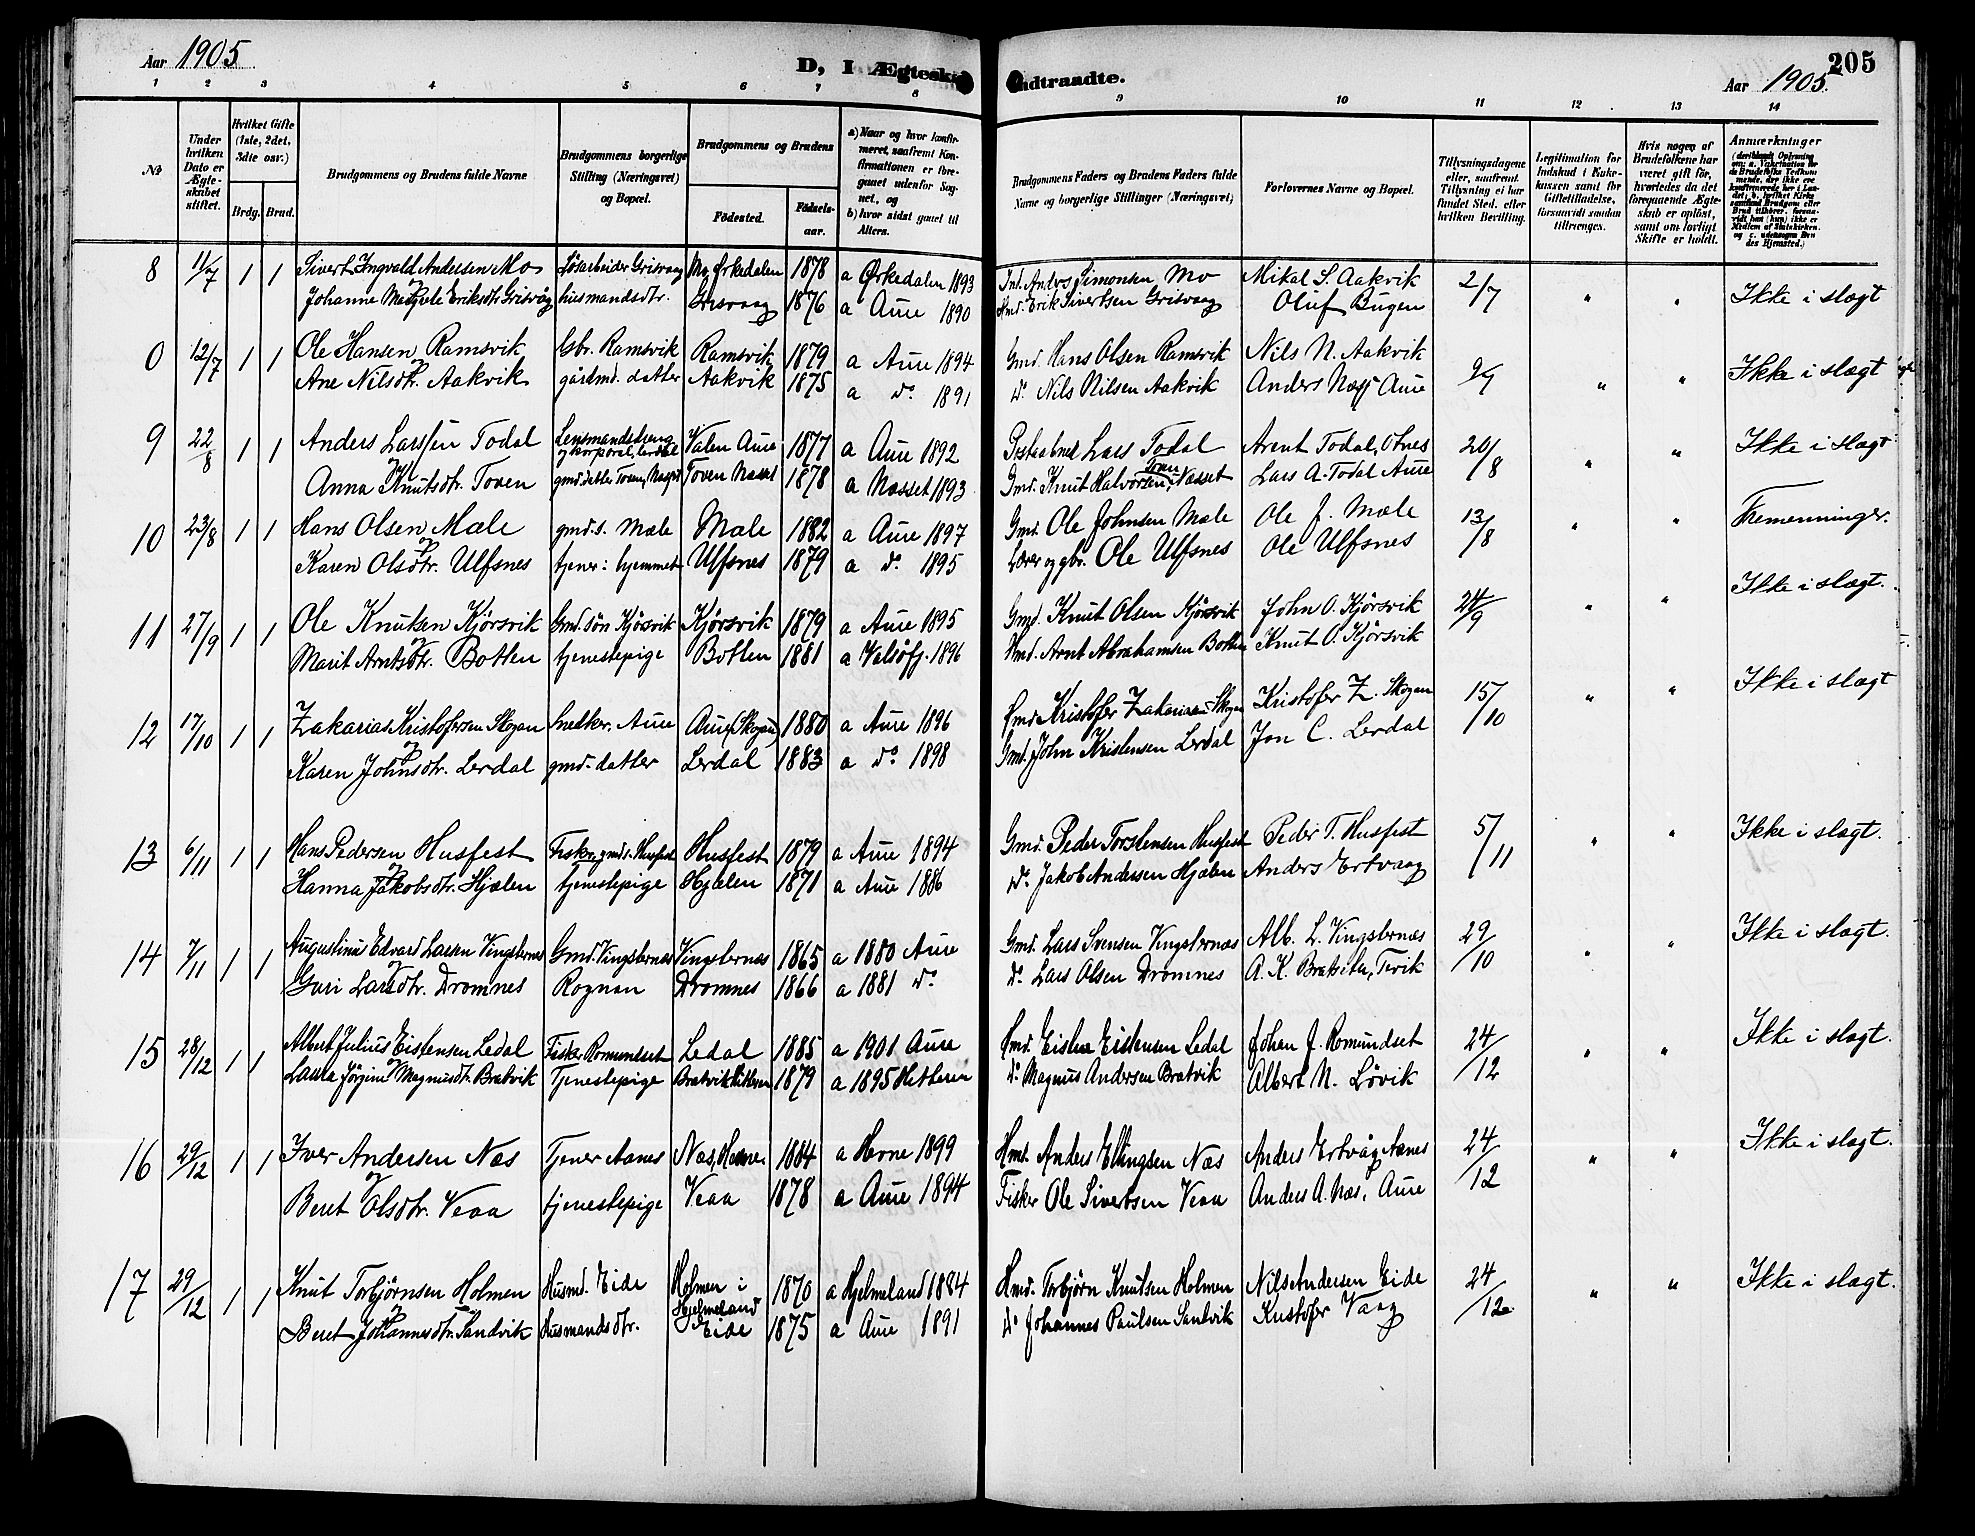 Aar 1905.
D, I Ægtesk
1 2 3 4 5 6 7 8
No
Under hvilken Dato er Ægteskabet stiftet.
Hvilket Gifte (1ste, 2det, 3die osv.)
Brdg. Brud.
Brudgommens og Brudens fulde Navne
Brudgommens borgerlige Stilling (Næringsvei) og Bopæl.
Brudgommens og Brudens
Fødested.
Fødselsaar.
a) Naar og hvor konfirmeret, saafremt Konfirmationen er foregaaet udenfor Sognet, og
b) hvor sidst gaaet til Alters.
8 11/7 1 1 Sivert Ingvald Andersen Mo Løsarbeider Grisvaag Mo, Ørkedalen 1878 a Ørkedalen 1893
og
Johanne Eriksdtr Grisvåg husmandsdtr. Grisvaag 1876 a Aure 1890
0 12/7 1 1 Ole Hansen Ramsvik Gbr. Ramsvik Ramsvik 1879 a Aure 1894
og
Ane Nilsdtr. Aakvik gårdmd. datter Aakvik 1875 a do 1891
9 22/8 1 1 Anders Larssen Todal Lensmandsdreng og korporal, Lerdal Valen Aure 1877 a Aure 1892
og
Anna Knutsdtr. Toven gmd. datter Toven, Næsset Toven Næsset 1878 a Næsset 1893
10 23/8 1 1 Hans Olsen Mæle gmd.s. Mæle Mæle 1882 a Aure 1897
og
Karen Olsdtr. Ulfsnes tjener i hjemmet Ulfsnes 1879 a do 1895
11 27/9 1 1 Ole Knutsen Kjörsvik Gmd. sön Kjösvik Kjörsvik 1879 a Aure 1895
og
Marit Arntsdtr. Botten tjenestepige Botten 1881 a Valsöfj. 1896
12 17/10 1 1 Zakarias Kristofersen Skogan Snedker. Aure Aure (Skogan) 1880 a Aure 1896
og
Karen Johnsdtr. Lerdal gmd. datter Lerdal 1883 a do 1898
13 6/11 1 1 Hans Pedersen Husfest Fisker, gmd.s. Husfest Husfest 1879 a Aure 1894
og
Hanna Jakobsdtr. Hjælen tjenestepige Hjælen 1871 a Aure 1886
14 7/11 1 1 Augustinus Edvard Larsen Vingsternes Gmd. Vingsternæs Vingsternæs 1865 a 1880 Aure
og
Guri Larsdtr. Dromnes Rognan Dromnes 1866 a 1881 do
15 28/12 1 1 Albert Julius Eistensen Ledal Fisker Romundset Ledal 1885 a 1901 Aure
og
Laura Jörgine Magnusdtr. Bratvik Tjenestepige Bratvik Hitteren 1879 a 1895 Hitteren
16 29/12 1 1 Iver Andersen Næs Tjener Aanes Næs, Hevne 1884 a Hevne 1899
og
Beret Olsdtr. Veaa tjenestepige Veaa 1878 a Aure 1894
17 29/12 1 1 Knut Torbjørnsen Holmen Husmd. Eide Holmen i Hjelmeland 1870 a Hjelmeland 1884
og
Beret Johannesdtr. Sandvik Husmandsdtr. Eide 1875 a Aure 1891
205
ndtraadte.
Aar 1905.
9 10 11 12 13 14
Brudgommens Faders og Brudens Faders fulde Navne og borgerlige Stillinger (Næringsvei)
Forlovernes Navne og Bopæl.
Tillysningsdagene eller, saafremt Tillysning ei har fundet Sted, efter hvilken Bevilling.
Legitimation for Indskud i Enkekassen samt for Giftetilladelse, forsaavidt saadan tiltrænges.
Hvis nogen af Brudefolkene har været gift før, hvorledes da det foregaaende Ægteskab er opløst, samt om lovligt Skifte er holdt.
Anmærkninger
Ind. Anders Simonsen Mo Mikal S. Aakvik 2/7 " " Ikke i slægt
Hmd. Erik Sivertsen Grisvaag Oluf Bugen
Gmd. Hans Olsen Ramsvik Nils N. Aakvik 9/7 " " Ikke i slægt
do Nils Nilsen Aakvik Anders Næss Aure
Lars Todal Arnt Todal, Otnes 20/8 " " Ikke i slægt
Gmd. Knut Halvorsen Toven i Næsset Lars A. Todal Aure
Gmd. Ole Johnsen Mæle Ole J. Mæle 13/8 " " Tremenninger.
Lærer og gbr. Ole Ulfsnes Ole Ulfsnes
Gmd. Knut Olsen Kjörsvik John O. Kjörsvik 24/9 " " Ikke i slægt.
Hmd. Arnt Abrahamsen Botten Knut O. Kjörsvik
Hmd. Kristofer Zakariassen Skogan Kristofer Z. Skogan 15/10 " " Ikke i slægt
Gmd. John Kristensen Lerdal Jon C. Lerdal
Gmd. Peder Torstensen Husfest Peder T. Husfest 5/11 " " Ikke i slægt.
do Jakob Andersen Hjælen Anders Ertvaag
Gmd. Lars Svensen Vingsternæs Alb. L. Vingsternæs 29/10 " " Ikke i slægt.
do Lars Olsen Dromnes A. K. Bratseter, Tevik
Hmd. Eisten Eistensen Ledal Johan J. Romundset 24/12 " " Ikke i slægt.
do Magnus Andersen Bratvik Albert N. Lövik
Hmd. Anders Ellingsen Næs Anders Ertvåg Aanes 24/12 " " Ikke i slægt.
Fisker Ole Sivertsen Veaa Anders A. Næs, Aure
Hmd. Torbjörn Knutsen Holmen Nils Andersen Eide 24/12 " " Ikke i slægt.
do Johannes Paulsen Sandvik Kristofer Vaag